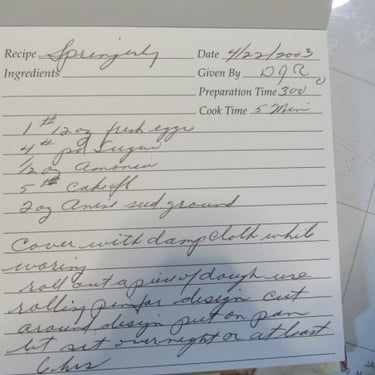 Recipe Springerly Date 4/22/2003
Ingredients Given By DJR
Preparation Time 300
Cook Time 5 Min
1 # 12 oz fresh eggs
4 # pd Sugar
1/2 oz Amonia
5 # Cake fl
2 oz Anise sud ground
Cover with damp Cloth while
woring
roll out a pice of dough use
rolling pin for design cut
around design put on pan
let set overnight or at least
6 hrs